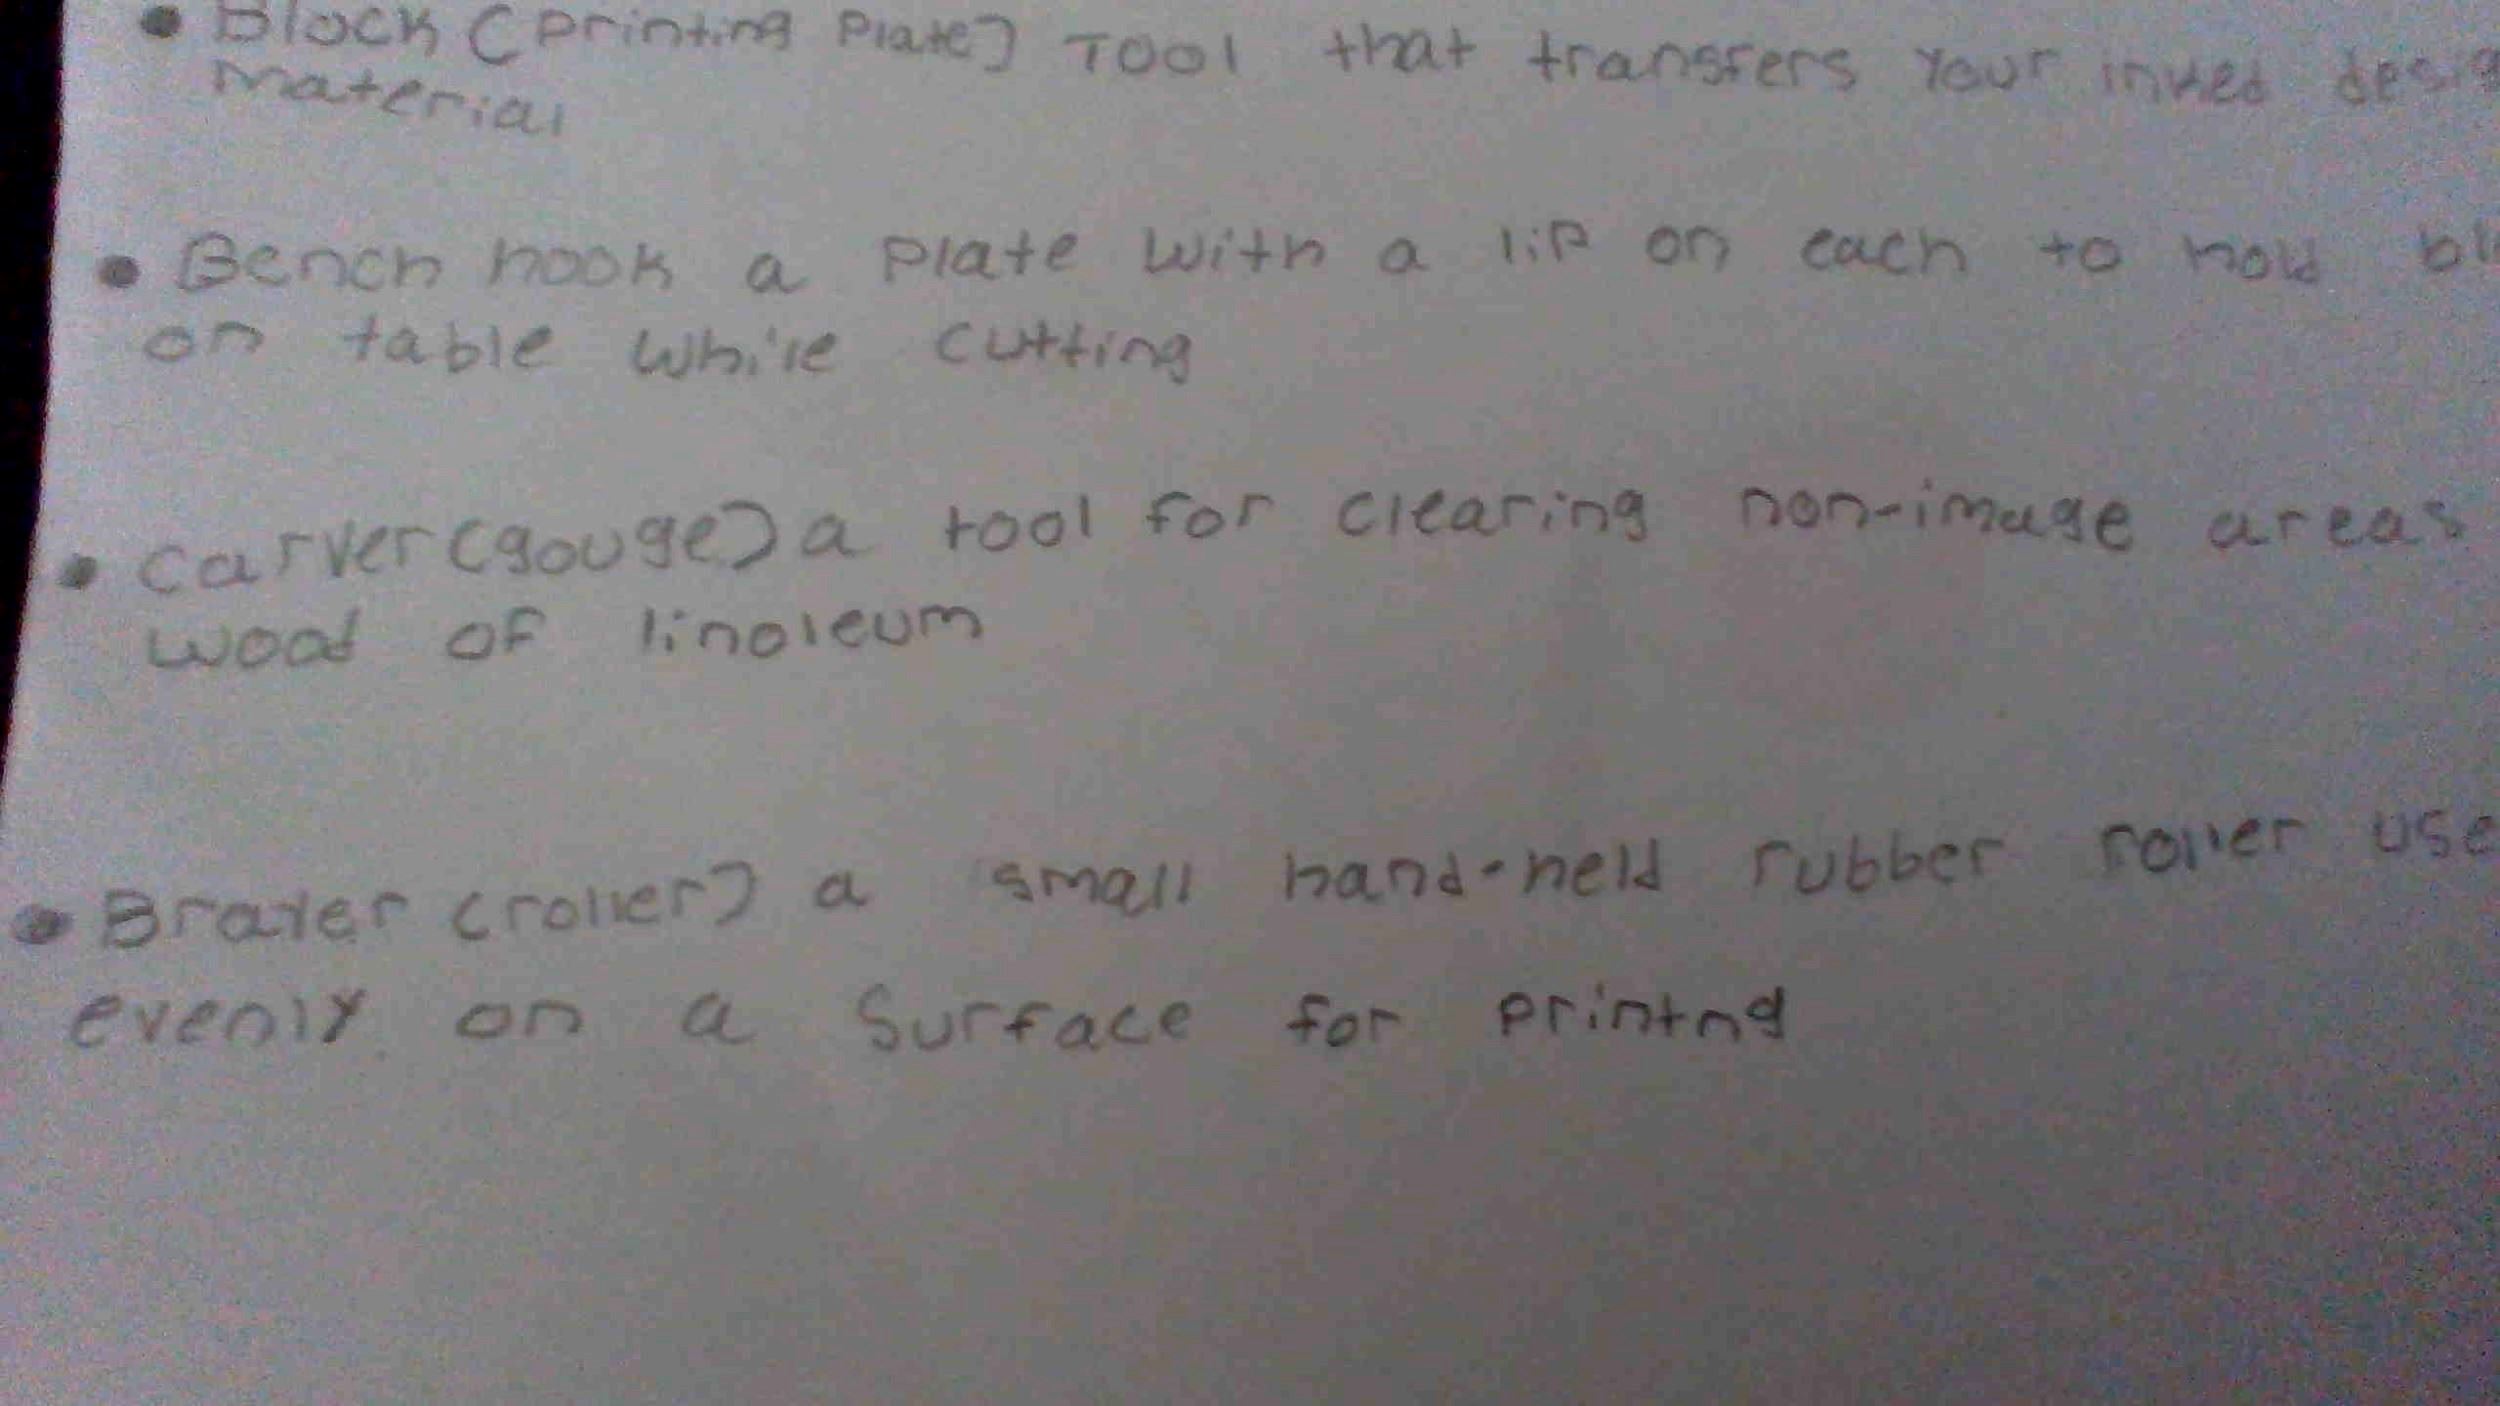 • Block (printing Plate) Tool that transfers your inked desig
material
• Bench hook a plate with a lip on each to hold bl
on table while cutting
• carver (gouge) a tool for clearing non-image areas
wood of linoleum
• Brayer (roller) a small hand-held rubber roller use
evenly on a surface for printng